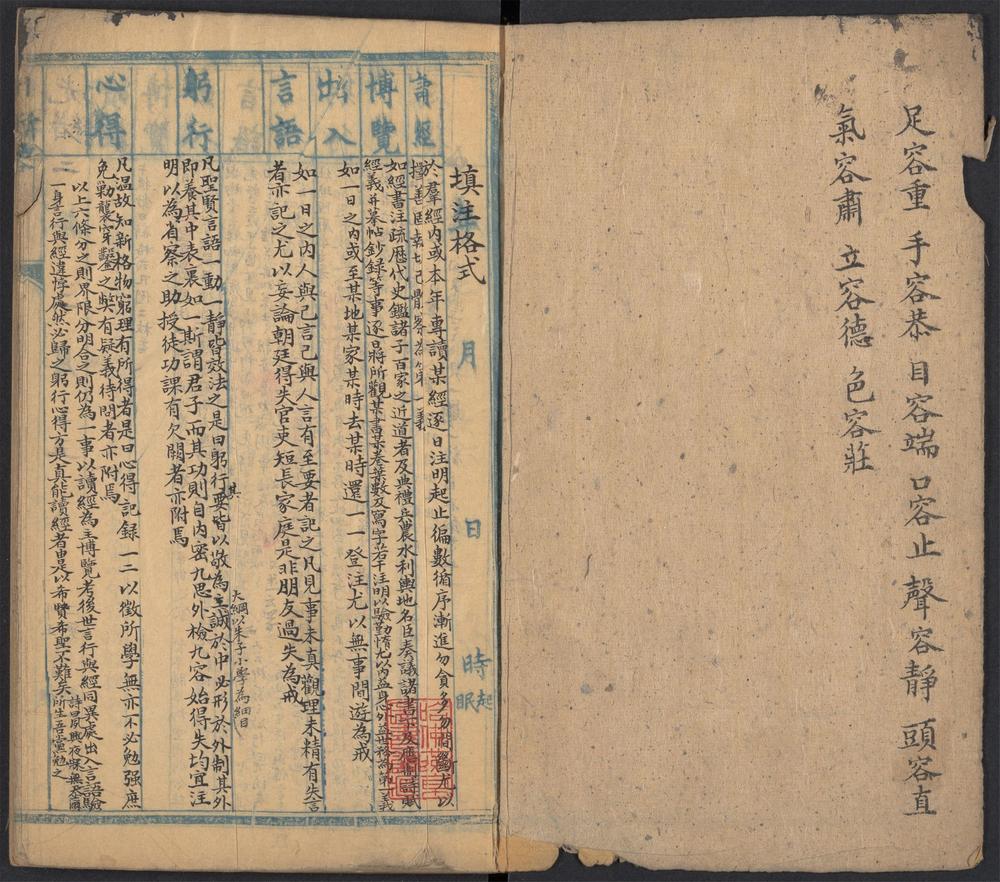 足容重 手容恭 目容端 口容止 聲容靜 頭容直
氣容肅 立容德 色容莊
填注格式
月 日 時起 眠
讀經
於羣經內或本年專讀某經逐日注明起止徧數循序漸進勿貪多勿間斷尤以
為第一義
博覽
如經書注疏歷代史鑑諸子百家之近道者及典禮兵農水利輿地名臣奏議諸書下及應制詩賦
經義并摹帖鈔錄等事逐日將所觀某書某卷葉數及寫字若干注明以驗勤惰尤以內益身心外益世務為第一義
出入
如一日之內或至某地某家某時去某時還一一登注尤以無事閒遊為戒
言語
如一日之內人與己言己與人言有至要者記之凡見事未真觀理未精有失言
者亦記之尤以妄論朝廷得失官吏短長家庭是非朋友過失為戒
躬行
凡聖賢言語一動一靜皆效法之是曰躬行其要皆以敬為主誠於中必形於外制其外
大綱以朱子小學為細目
即養其中表裏如一斯謂君子而其功則自內密九思外檢九容始得失均宜注
明以為省察之助授徒功課有欠闕者亦附焉
心得
凡溫故知新格物窮理有所得者是曰心得記錄一二以徵所學無亦不必勉强庶
免勦襲穿鑿之弊有疑義待問者亦附焉
以上六條分之則界限分明合之則仍為一事以讀經為主博覽考後世言行與經同異處出入言語驗
一身言行與經違悖處然必歸之躬行心得方是真能讀經者由是以希賢希聖不難矣詩曰夙興夜寐無忝爾所生吾黨勉之